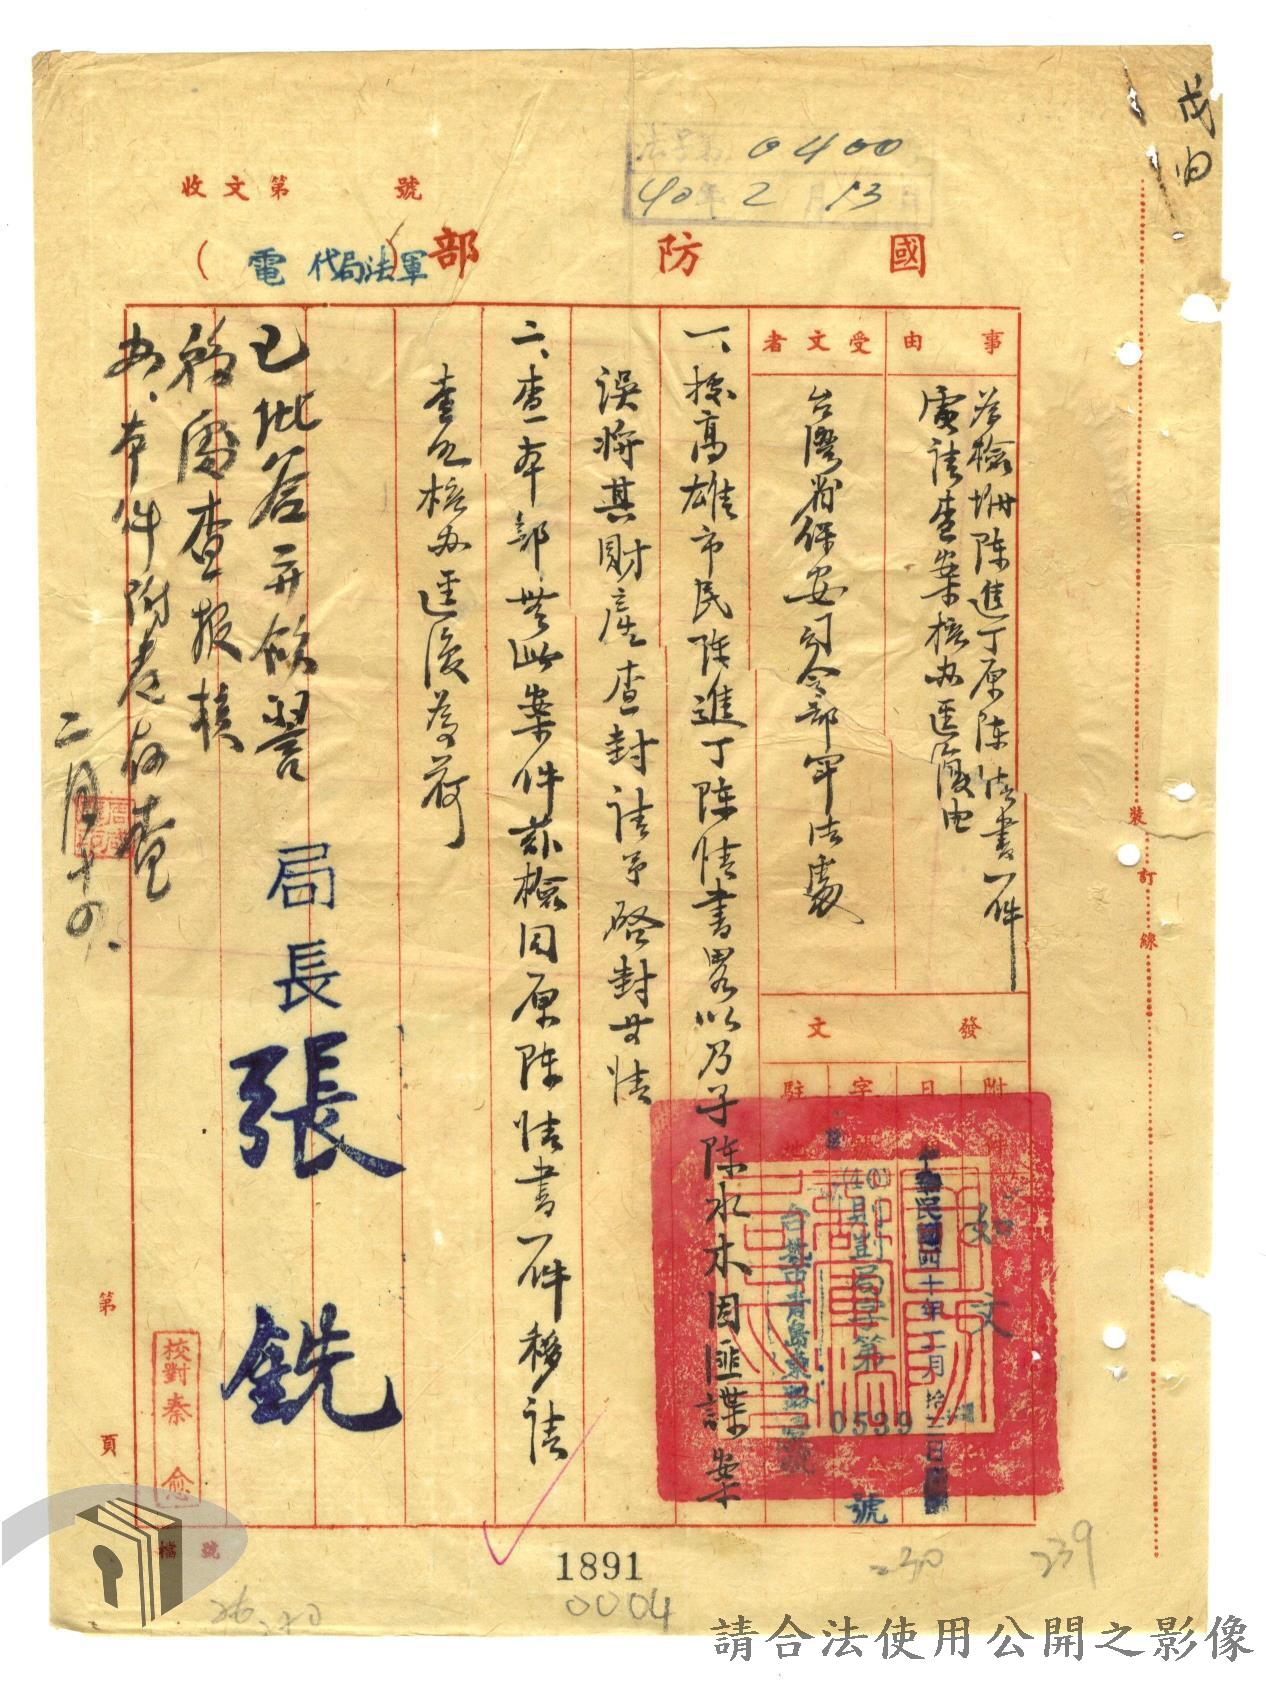 戌
法字第 0400
40年 2月 13日
收文第 號
國防部
(軍法局代電)
事由
為檢坿陳進丁原陳情書一件
電請查案核办逕復由
受文者
台灣省保安司令部軍法處
發文
附
日
字
駐地
如文
中華民國四十年二月拾三日
號
0539
一、據高雄市民陳進丁陳情書畧以乃子陳水木因匪諜案
誤將其財產查封請予啓封等情
二、查本部無此案件茲檢同原陳情書一件移請
查照核办逕復為荷
局長張銑
已批答并飭警
務處查報核
办、本件附卷存查
二月十四、
校對秦愈
裝訂線
第 頁
檔號
1891
0004
230
239
請合法使用公開之影像